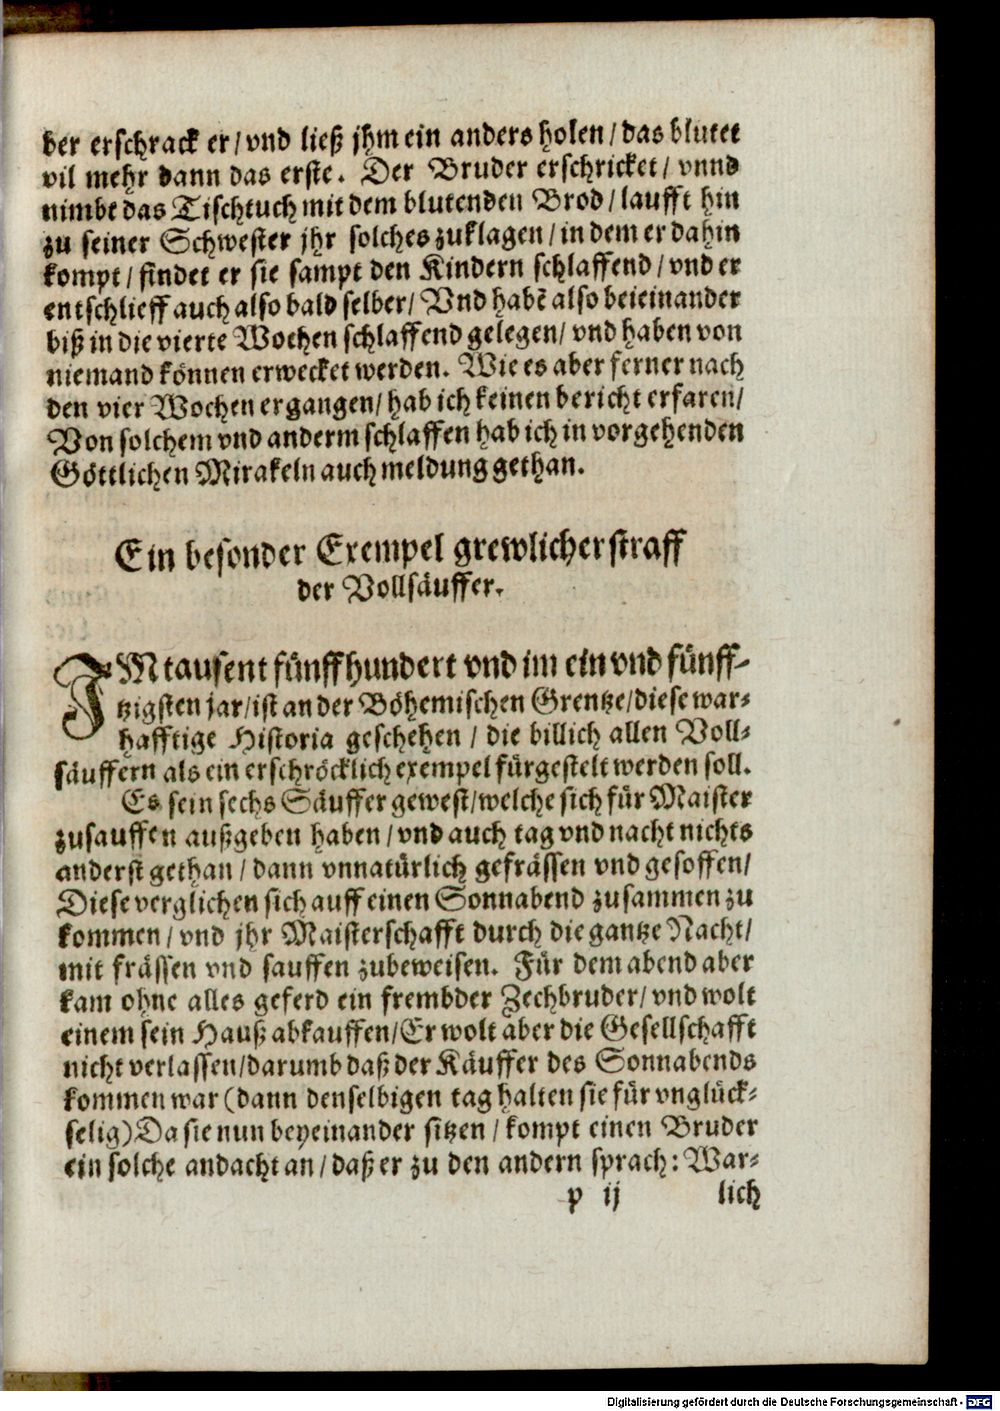 der erschrack er/ vnd ließ jhm ein anders holen/ das blutet
vil mehr dann das erste. Der Bruder erschricket/ vnnd
nimbt das Tischtuch mit dem blutenden Brod/ laufft hin
zu seiner Schwester jhr solches zuklagen/ in dem er dahin
kompt/ findet er sie sampt den Kindern schlaffend/ vnd er
entschlieff auch also bald selber/ Vnd habē also beieinander
biß in die vierte Wochen schlaffend gelegen/ vnd haben von
niemand können erwecket werden. Wie es aber ferner nach
den vier Wochen ergangen/ hab ich keinen bericht erfaren/
Von solchem vnd anderm schlaffen hab ich in vorgehenden
Göttlichen Mirakeln auch meldung gethan.
Ein besonder Exempel grewlicher straff
der Vollsäuffer.
IM tausent fünffhundert vnd im ein vnd fünff-
tzigsten jar/ ist an der Böhemischen Grentze/ diese war-
hafftige Historia geschehen / die billich allen Voll-
säuffern als ein erschröcklich exempel fürgestelt werden soll.
Es sein sechs Säuffer gewest/ welche sich für Maister
zusauffen außgeben haben/ vnd auch tag vnd nacht nichts
anderst gethan/ dann vnnatürlich gefrässen vnd gesoffen/
Diese verglichen sich auff einen Sonnabend zusammen zu
kommen/ vnd jhr Maisterschafft durch die gantze Nacht/
mit frässen vnd sauffen zubeweisen. Für dem abend aber
kam ohne alles geferd ein frembder Zechbruder/ vnd wolt
einem sein Hauß abkauffen/ Er wolt aber die Gesellschafft
nicht verlassen/ darumb daß der Käuffer des Sonnabends
kommen war (dann denselbigen tag halten sie für vnglück-
selig) Da sie nun beyeinander sitzen/ kompt einen Bruder
ein solche andacht an/ daß er zu den andern sprach: War-
p ij lich
Digitalisierung gefördert durch die Deutsche Forschungsgemeinschaft - DFG